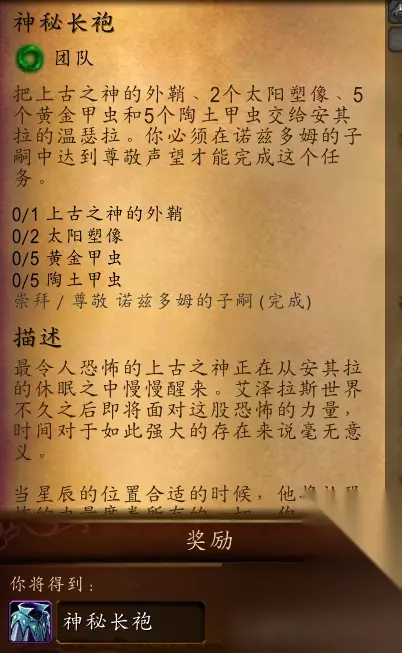 神秘长袍
团队
把上古之神的外鞘、2个太阳塑像、5
个黄金甲虫和5个陶土甲虫交给安其
拉的温瑟拉。你必须在诺兹多姆的子
嗣中达到尊敬声望才能完成这个任
务。
0/1 上古之神的外鞘
0/2 太阳塑像
0/5 黄金甲虫
0/5 陶土甲虫
崇拜 / 尊敬 诺兹多姆的子嗣 (完成)
描述
最令人恐怖的上古之神正在从安其拉
的休眠之中慢慢醒来。艾泽拉斯世界
不久之后即将面对这股恐怖的力量，
时间对于如此强大的存在来说毫无意
义。
当星辰的位置合适的时候，他
奖励
你将得到：
神秘长袍